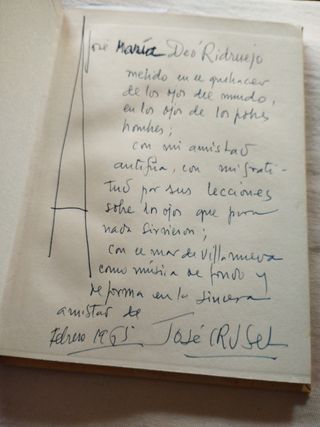 A José María Deó Ridruejo
metido en el quehacer
de los ojos del mundo,
en los ojos de los pobres
hombres;
con mi amistad
antigua, con mi grati-
tud por sus lecciones
sobre los ojos que para
nada sirvieron;
con el mar de Villanueva
como música de fondo y
forma en la sincera
amistad de
José CRUSET
Febrero 1965